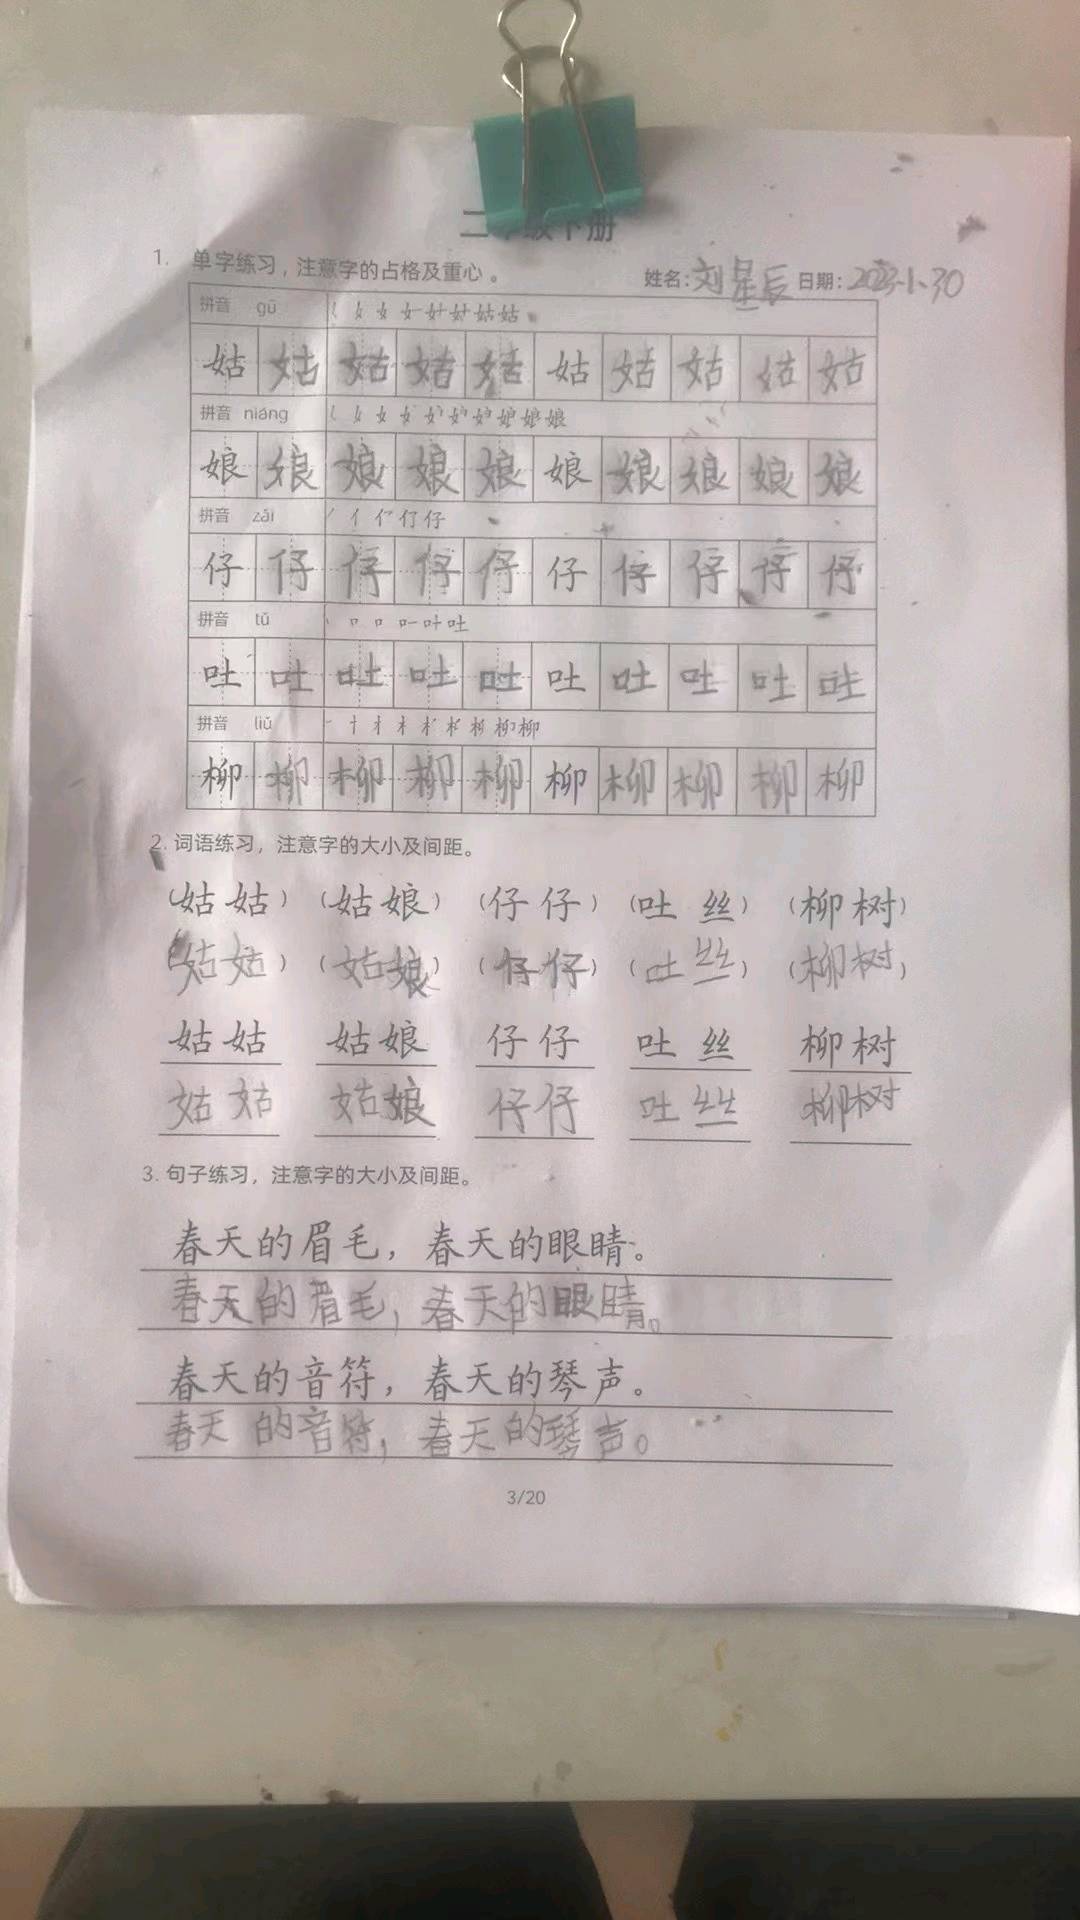 二年级下册
1. 单字练习，注意字的占格及重心。
姓名：刘星辰 日期：2023.1.30
拼音 gū 姑姑
姑 姑 姑 姑 姑 姑 姑 姑 姑 姑
拼音 niáng 娘娘
娘 娘 娘 娘 娘 娘 娘 娘 娘 娘
拼音 zǎi 亻 仔
仔 仔 仔 仔 仔 仔 仔 仔 仔 仔
拼音 tǔ 吐
吐 吐 吐 吐 吐 吐 吐 吐 吐 吐
拼音 liǔ 柳柳
柳 柳 柳 柳 柳 柳 柳 柳 柳 柳
2. 词语练习，注意字的大小及间距。
（姑姑）（姑娘）（仔仔）（吐丝）（柳树）
（姑姑）（姑娘）（仔仔）（吐丝）（柳树）
姑姑 姑娘 仔仔 吐丝 柳树
姑姑 姑娘 仔仔 吐丝 柳树
3. 句子练习，注意字的大小及间距。
春天的眉毛，春天的眼睛。
春天的眉毛，春天的眼睛。
春天的音符，春天的琴声。
春天的音符，春天的琴声。
3/20